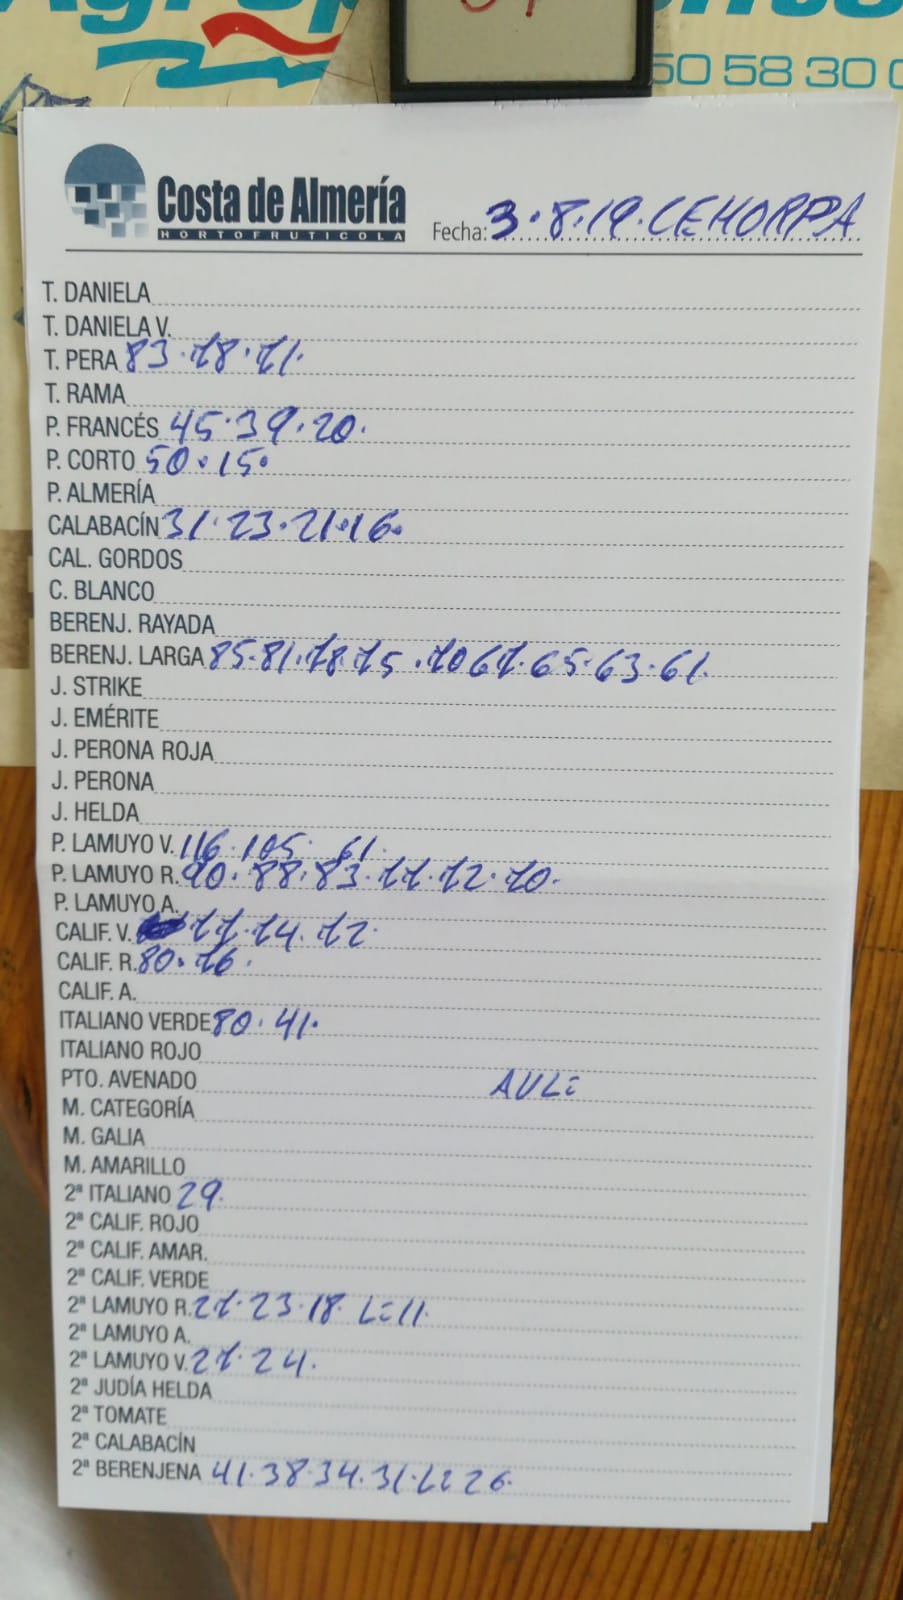 50 58 30 0
Costa de Almería
HORTOFRUTICOLA
Fecha: 3.8.19. CEHORPA
T. DANIELA
T. DANIELA V.
T. PERA 83.78.71.
T. RAMA
P. FRANCÉS 45.39.20.
P. CORTO 50.15.
P. ALMERÍA
CALABACÍN 31.23.21.16.
CAL. GORDOS
C. BLANCO
BERENJ. RAYADA
BERENJ. LARGA 85.81.78.75.70 67.65.63.61.
J. STRIKE
J. EMÉRITE
J. PERONA ROJA
J. PERONA
J. HELDA
P. LAMUYO V. 116.105. 61.
P. LAMUYO R. 90.88.83.77.72.70.
P. LAMUYO A.
CALIF. V. 77.74.72
CALIF. R. 80.76.
CALIF. A.
ITALIANO VERDE 80.41.
ITALIANO ROJO
PTO. AVENADO
M. CATEGORÍA
M. GALIA
M. AMARILLO
2ª ITALIANO 29.
2ª CALIF. ROJO
2ª CALIF. AMAR.
2ª CALIF. VERDE
2ª LAMUYO R. 27.23.18. L=11.
2ª LAMUYO A.
2ª LAMUYO V. 27.24.
2ª JUDÍA HELDA
2ª TOMATE
2ª CALABACÍN
2ª BERENJENA 41.38.34.31. 26.